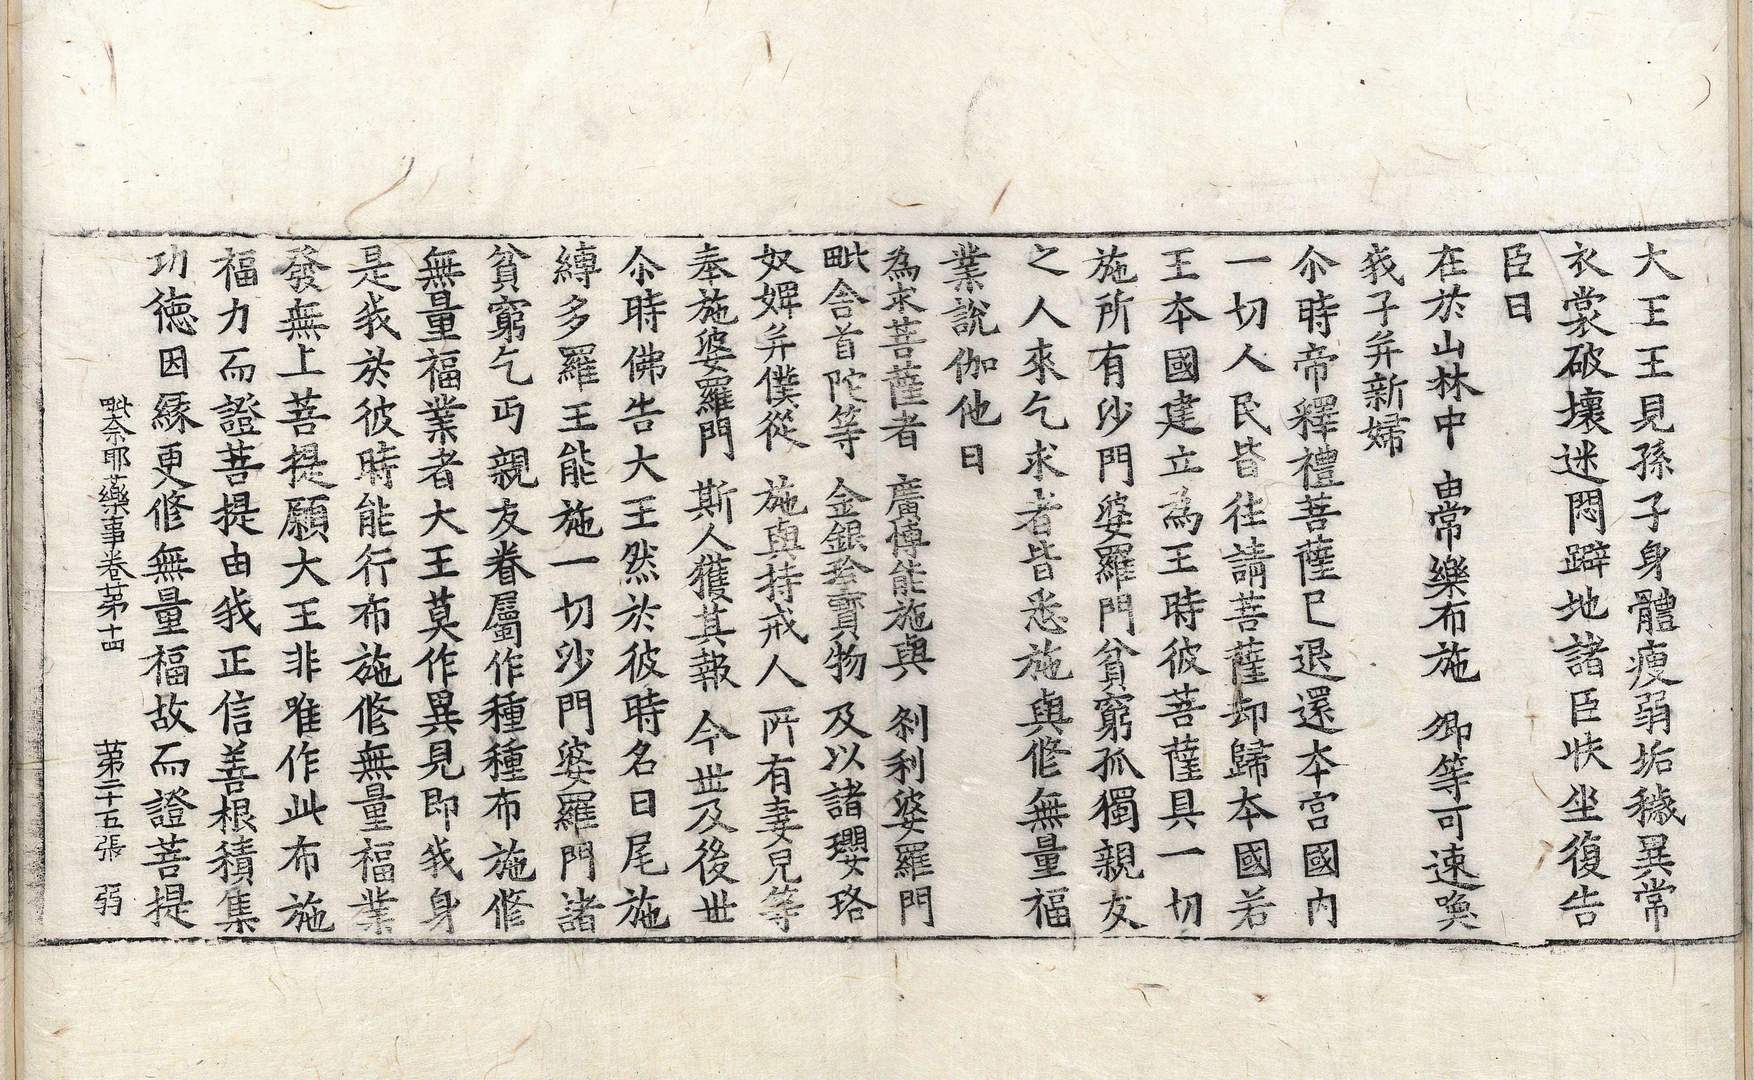 大王王見孫子身體瘦弱垢穢異常
衣裳破壞迷悶躃地諸臣扶坐復告
臣曰
在於山林中　由常樂布施　卿等可速喚
我子并新婦
尒時帝釋禮菩薩已退還本宮國內
一切人民皆往請菩薩却歸本國若
王本國建立為王時彼菩薩具一切
施所有沙門婆羅門貧窮孤獨親友
之人來乞求者皆悉施與修無量福
業說伽他曰
為求菩薩者　廣博能施與　刹利婆羅門
毗舍首陀等　金銀珍寶物　及以諸瓔珞
奴婢并僕從　施與持戒人　所有妻兒等
奉施婆羅門　斯人獲其報　今世及後世
尒時佛告大王然於彼時名曰尾施
縛多羅王能施一切沙門婆羅門諸
貧窮乞丐親友眷屬作種種布施修
無量福業者大王莫作異見即我身
是我於彼時能行布施修無量福業
發無上菩提願大王非唯作此布施
福力而證菩提由我正信善根積集
功德因緣更修無量福故而證菩提
毗奈耶藥事卷第十四　第二十五張　弱